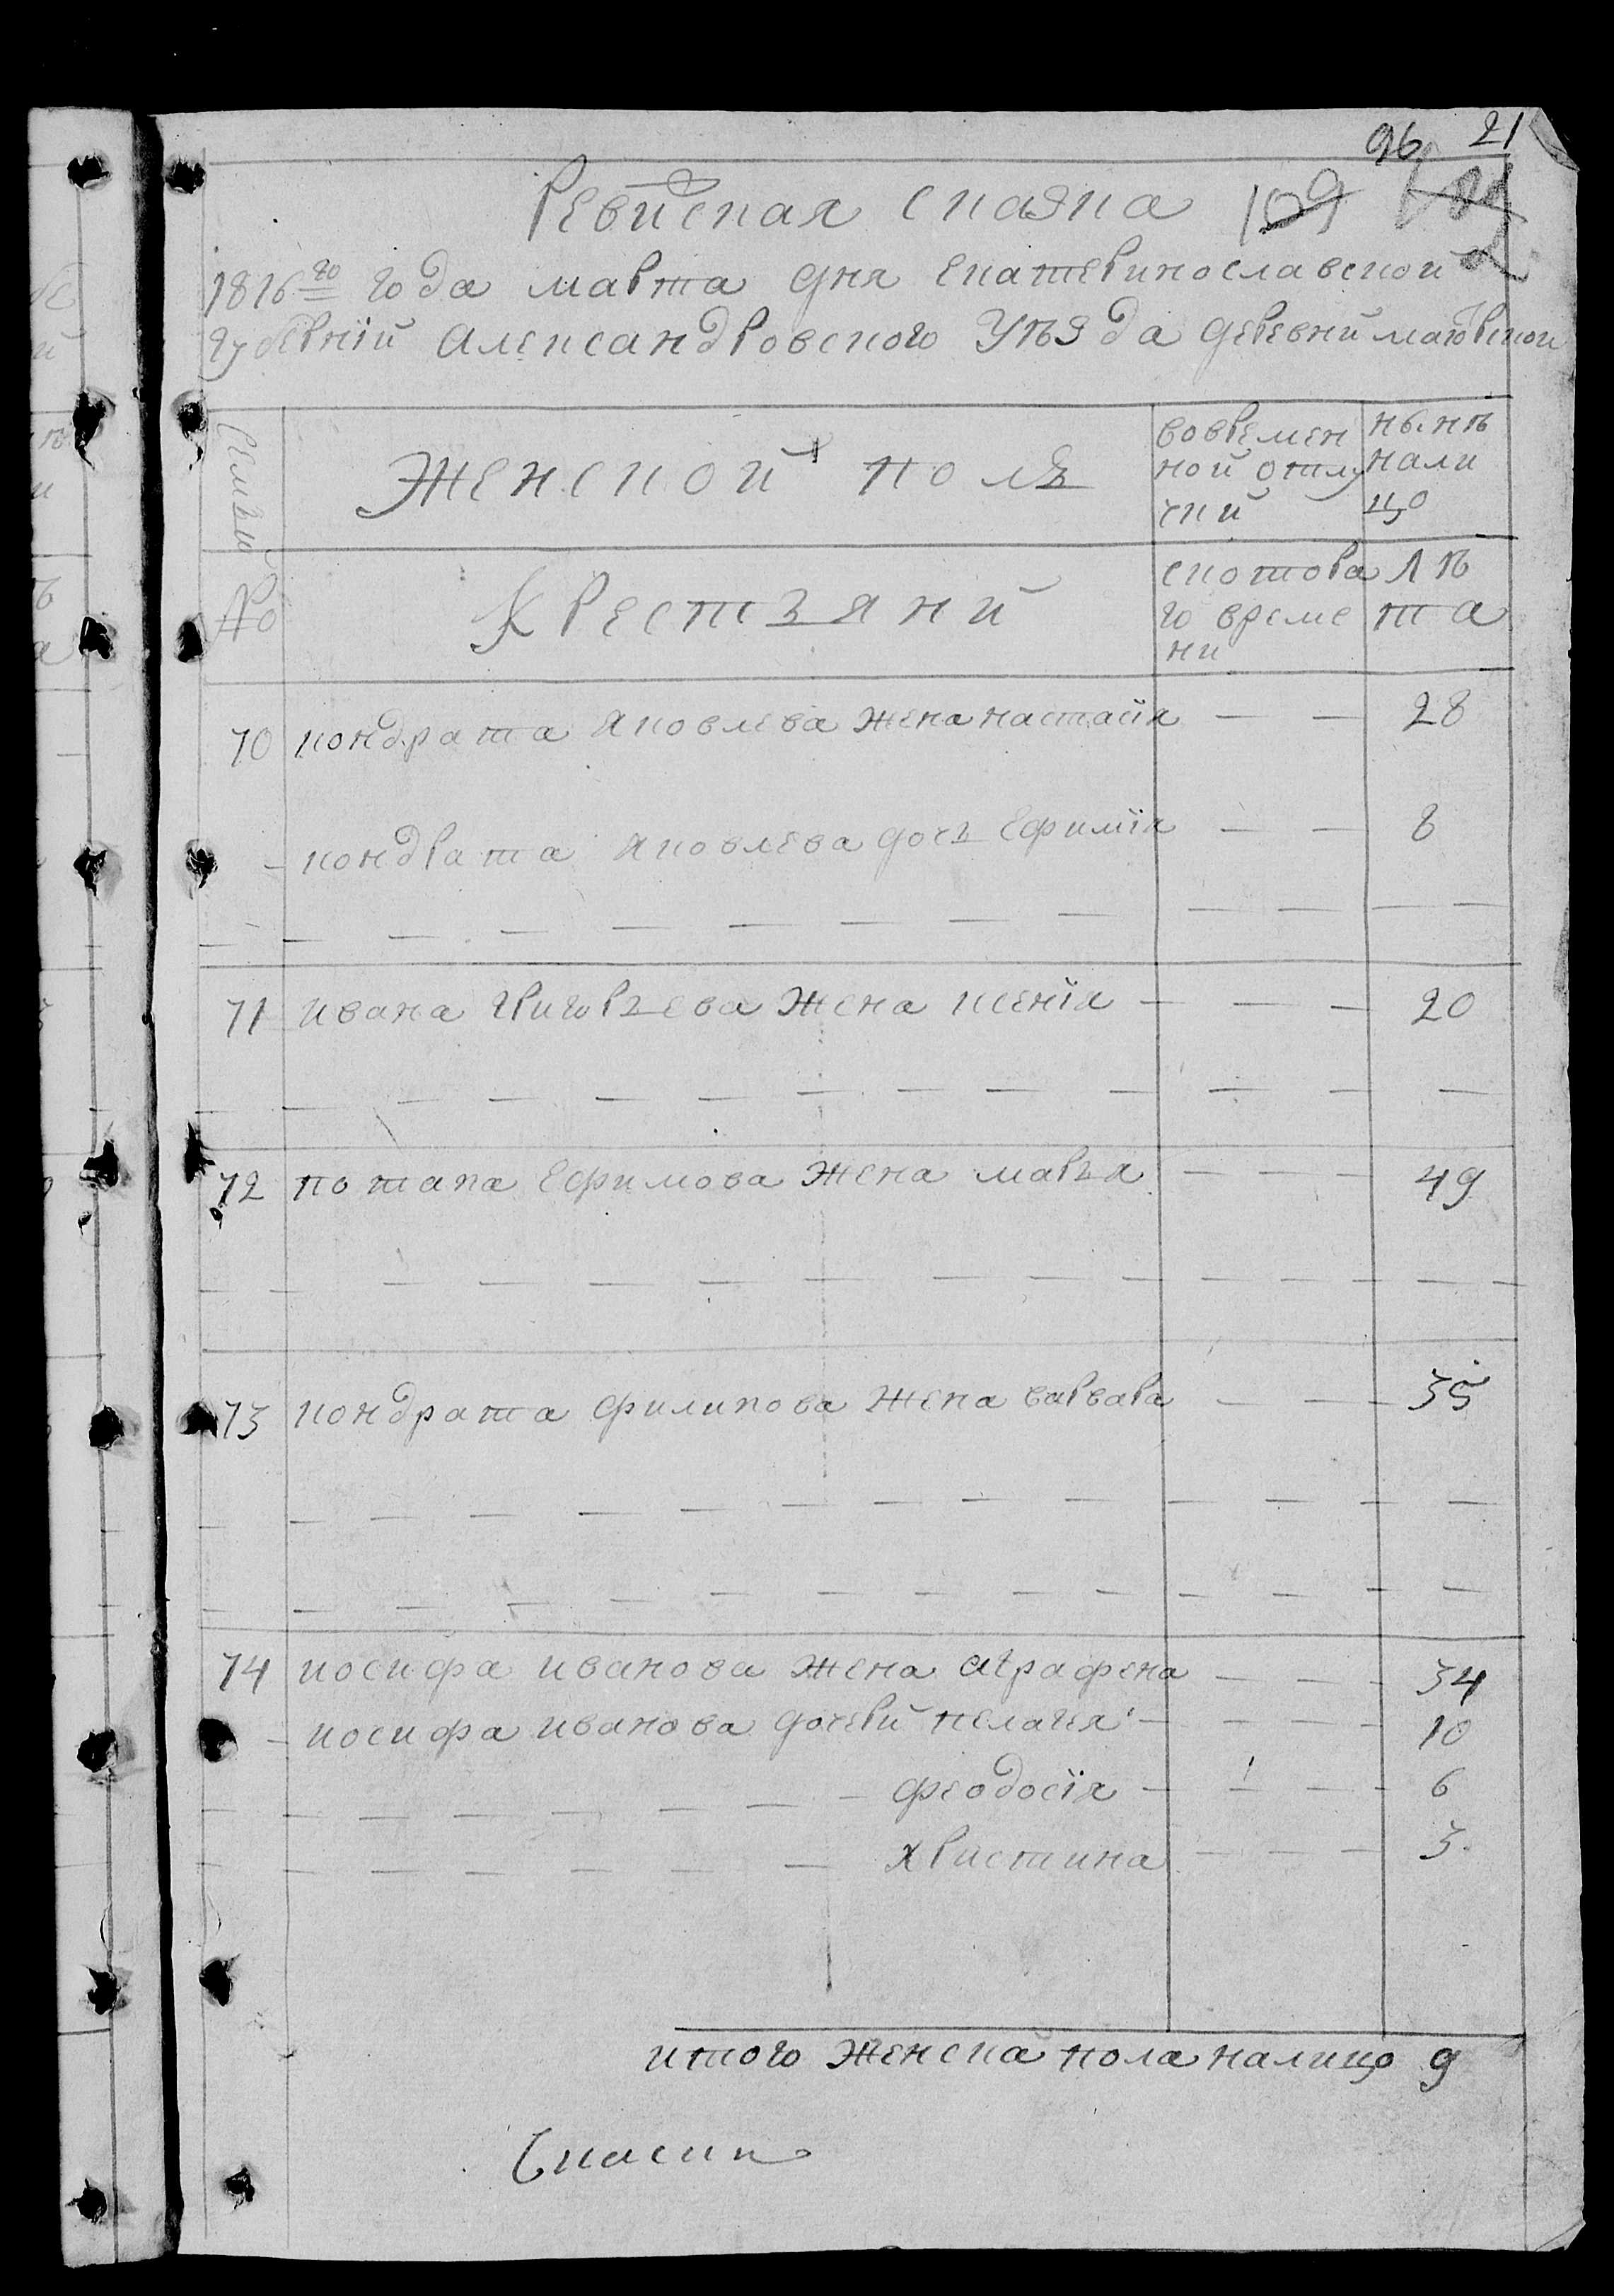 96 21
Ревиская сказка 109
1816го года марта дня екатеринославской
губернiй александровского уѣзда деревнй
семьи
женской полъ
вовремен
ной отлу
чкй
нынѣ
нали
цо
№
Крестьянй
скотова
го време
ни
лѣ
та
70 кондрата яковлева жена настасiя — — 28
— кондрата яковлева дочь ефимiя — — 8
71 ивана григорьева жена ксенiя — — — 20
72 потапа ефимова жена марья — — — 49
73 кондрата филипова жена варвара — — — 35
74 иосифа иванова жена аграфена — — — 34
— иосифа иванова дочерй пелагея — — — — 10
феодосiя — — — — 6
христина — — — 3
итого женска пола налицо 9